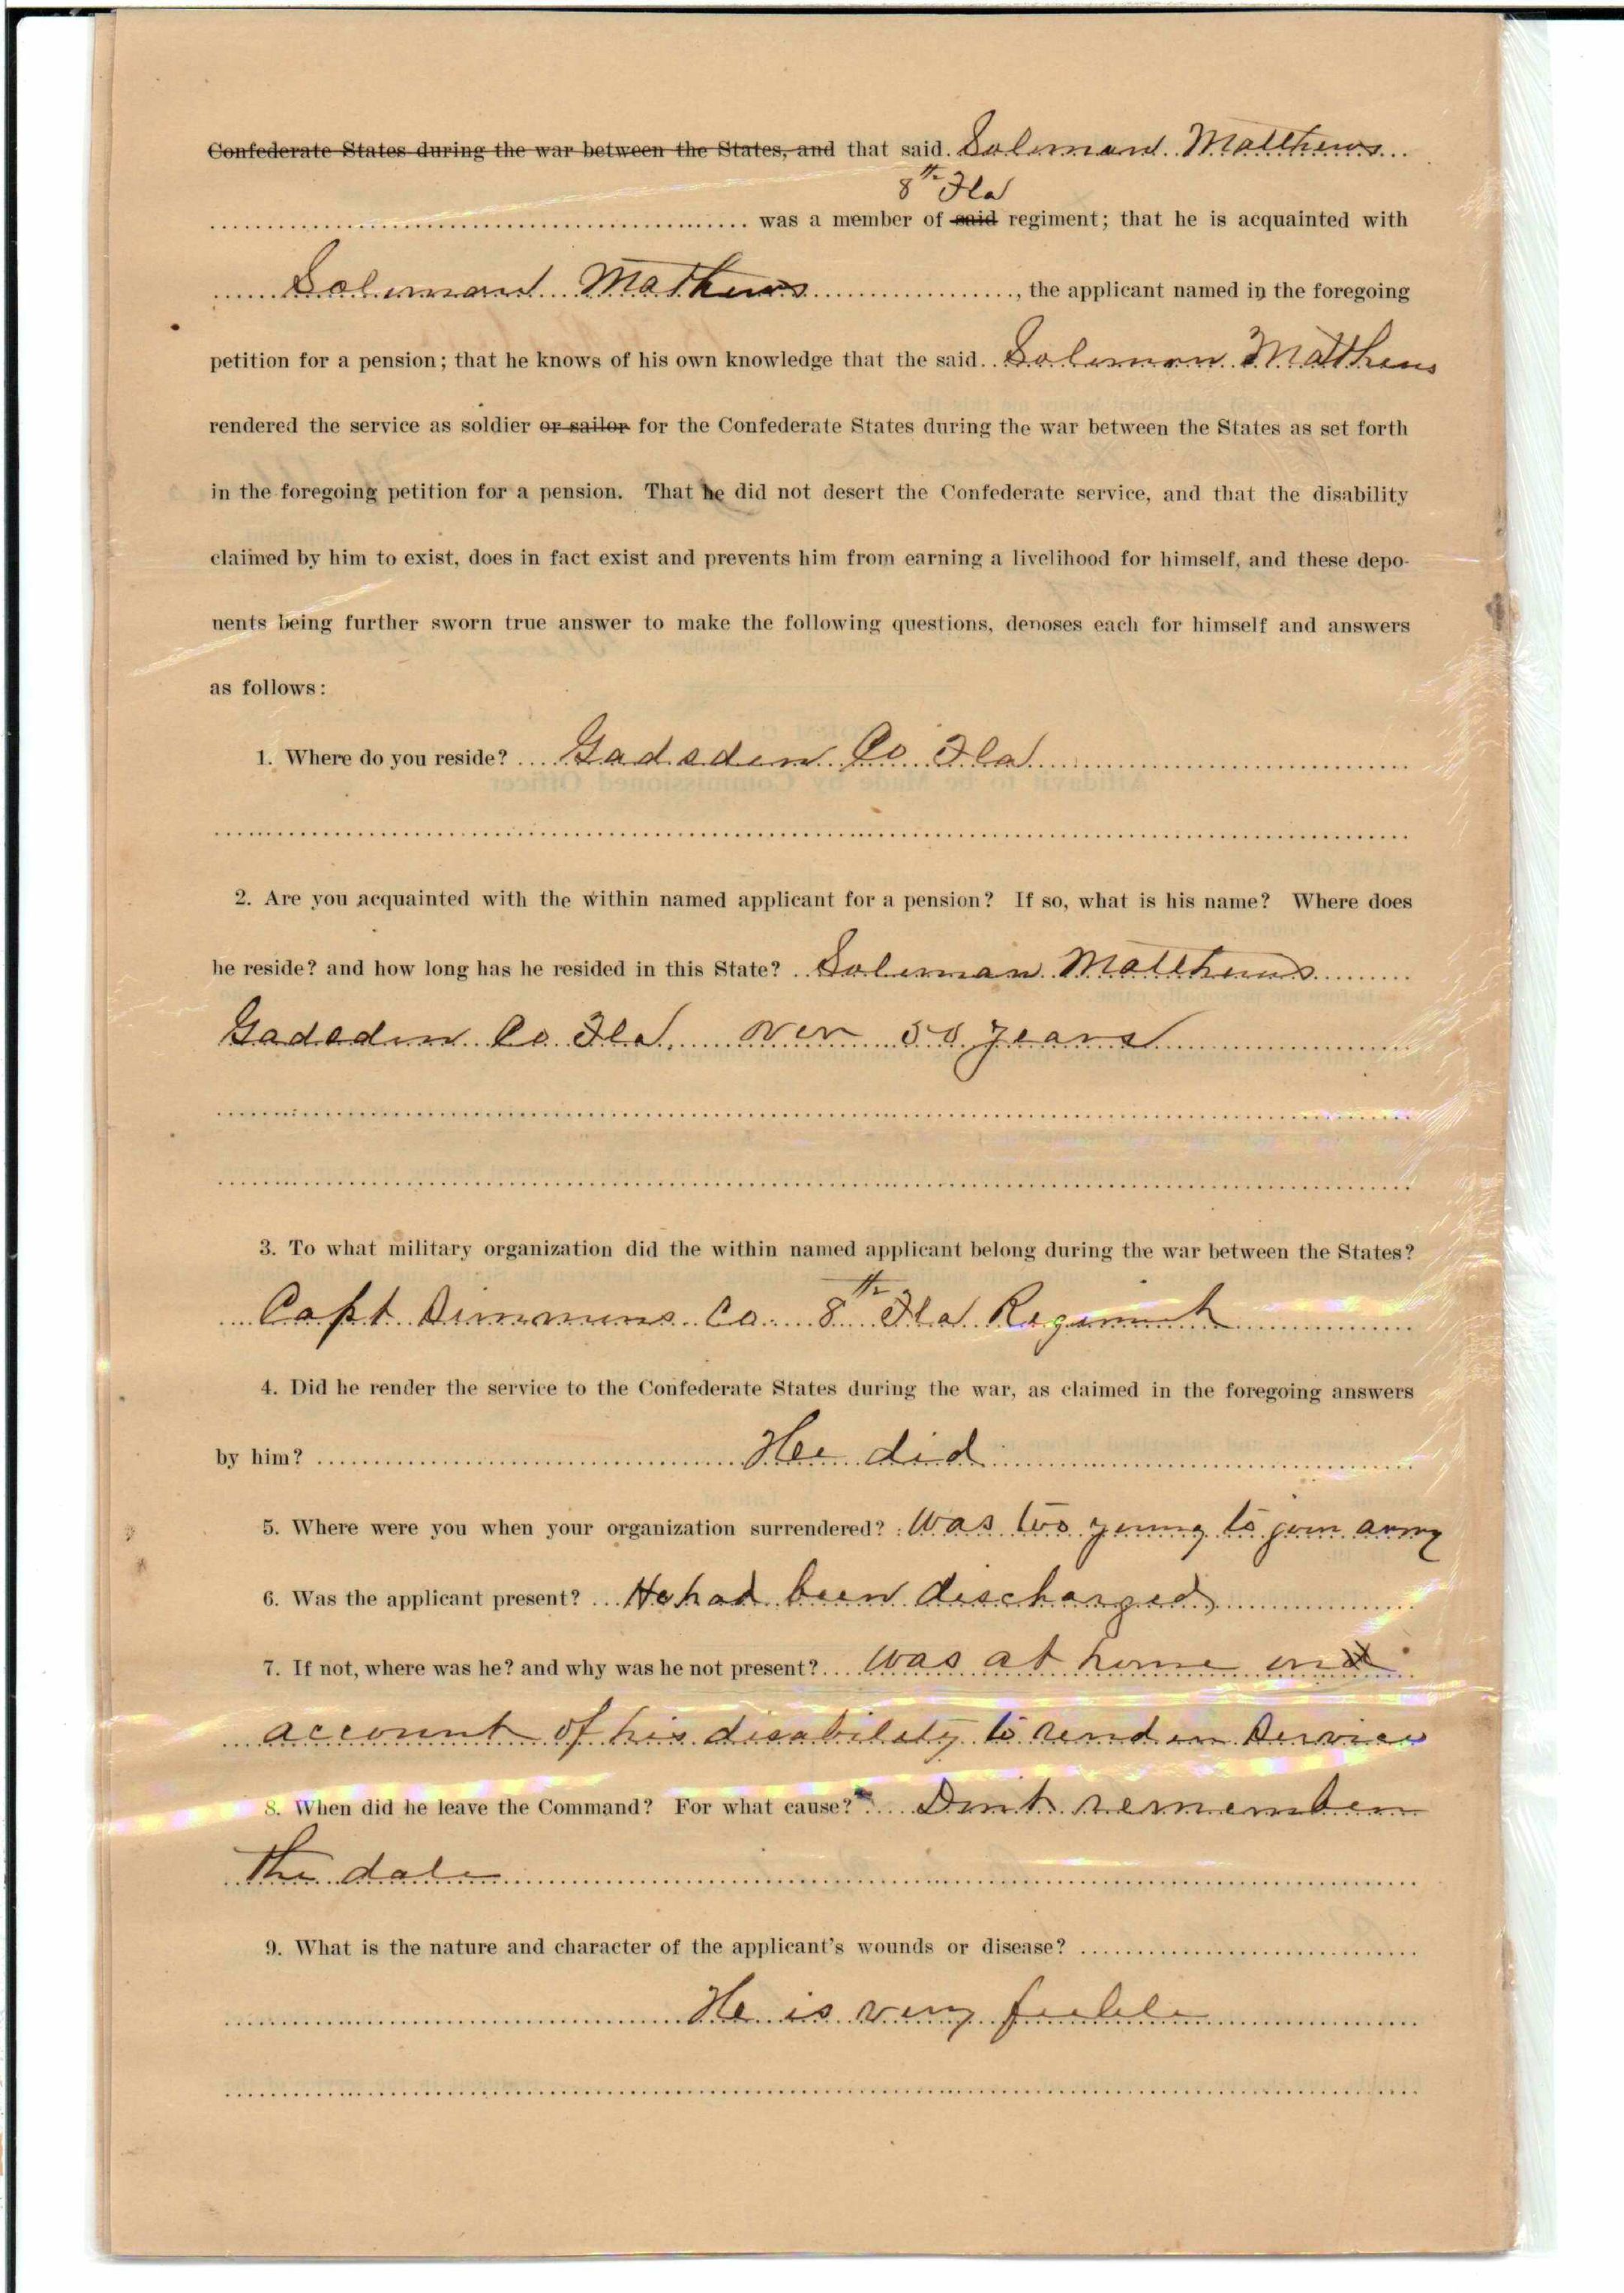 Confederate States during the war between the States, and that said. Soloman Matthews
8th Fla
was a member of said regiment; that he is acquainted with
Soloman Mathews, the applicant named in the foregoing
petition for a pension; that he knows of his own knowledge that the said. Soloman Matthews
rendered the service as soldier or sailor for the Confederate States during the war between the States as set forth
in the foregoing petition for a pension. That he did not desert the Confederate service, and that the disability
claimed by him to exist, does in fact exist and prevents him from earning a livelihood for himself, and these depo-
nents being further sworn true answer to make the following questions, deposes each for himself and answers
as follows:
1. Where do you reside? Gadsden Co Fla
2. Are you acquainted with the within named applicant for a pension? If so, what is his name? Where does
he reside? and how long has he resided in this State? Soloman Matthews
Gadsden Co Fla. over 50 years
3. To what military organization did the within named applicant belong during the war between the States?
Capt Simmons Co 8th Fla Regiment
4. Did he render the service to the Confederate States during the war, as claimed in the foregoing answers
by him? He did
5. Where were you when your organization surrendered? Was too young to join army
6. Was the applicant present? He had been discharged
7. If not, where was he? and why was he not present? Was at home on
account of his disability to render Service
8. When did he leave the Command? For what cause? Dont remember
the date
9. What is the nature and character of the applicant's wounds or disease?
He is very feeble